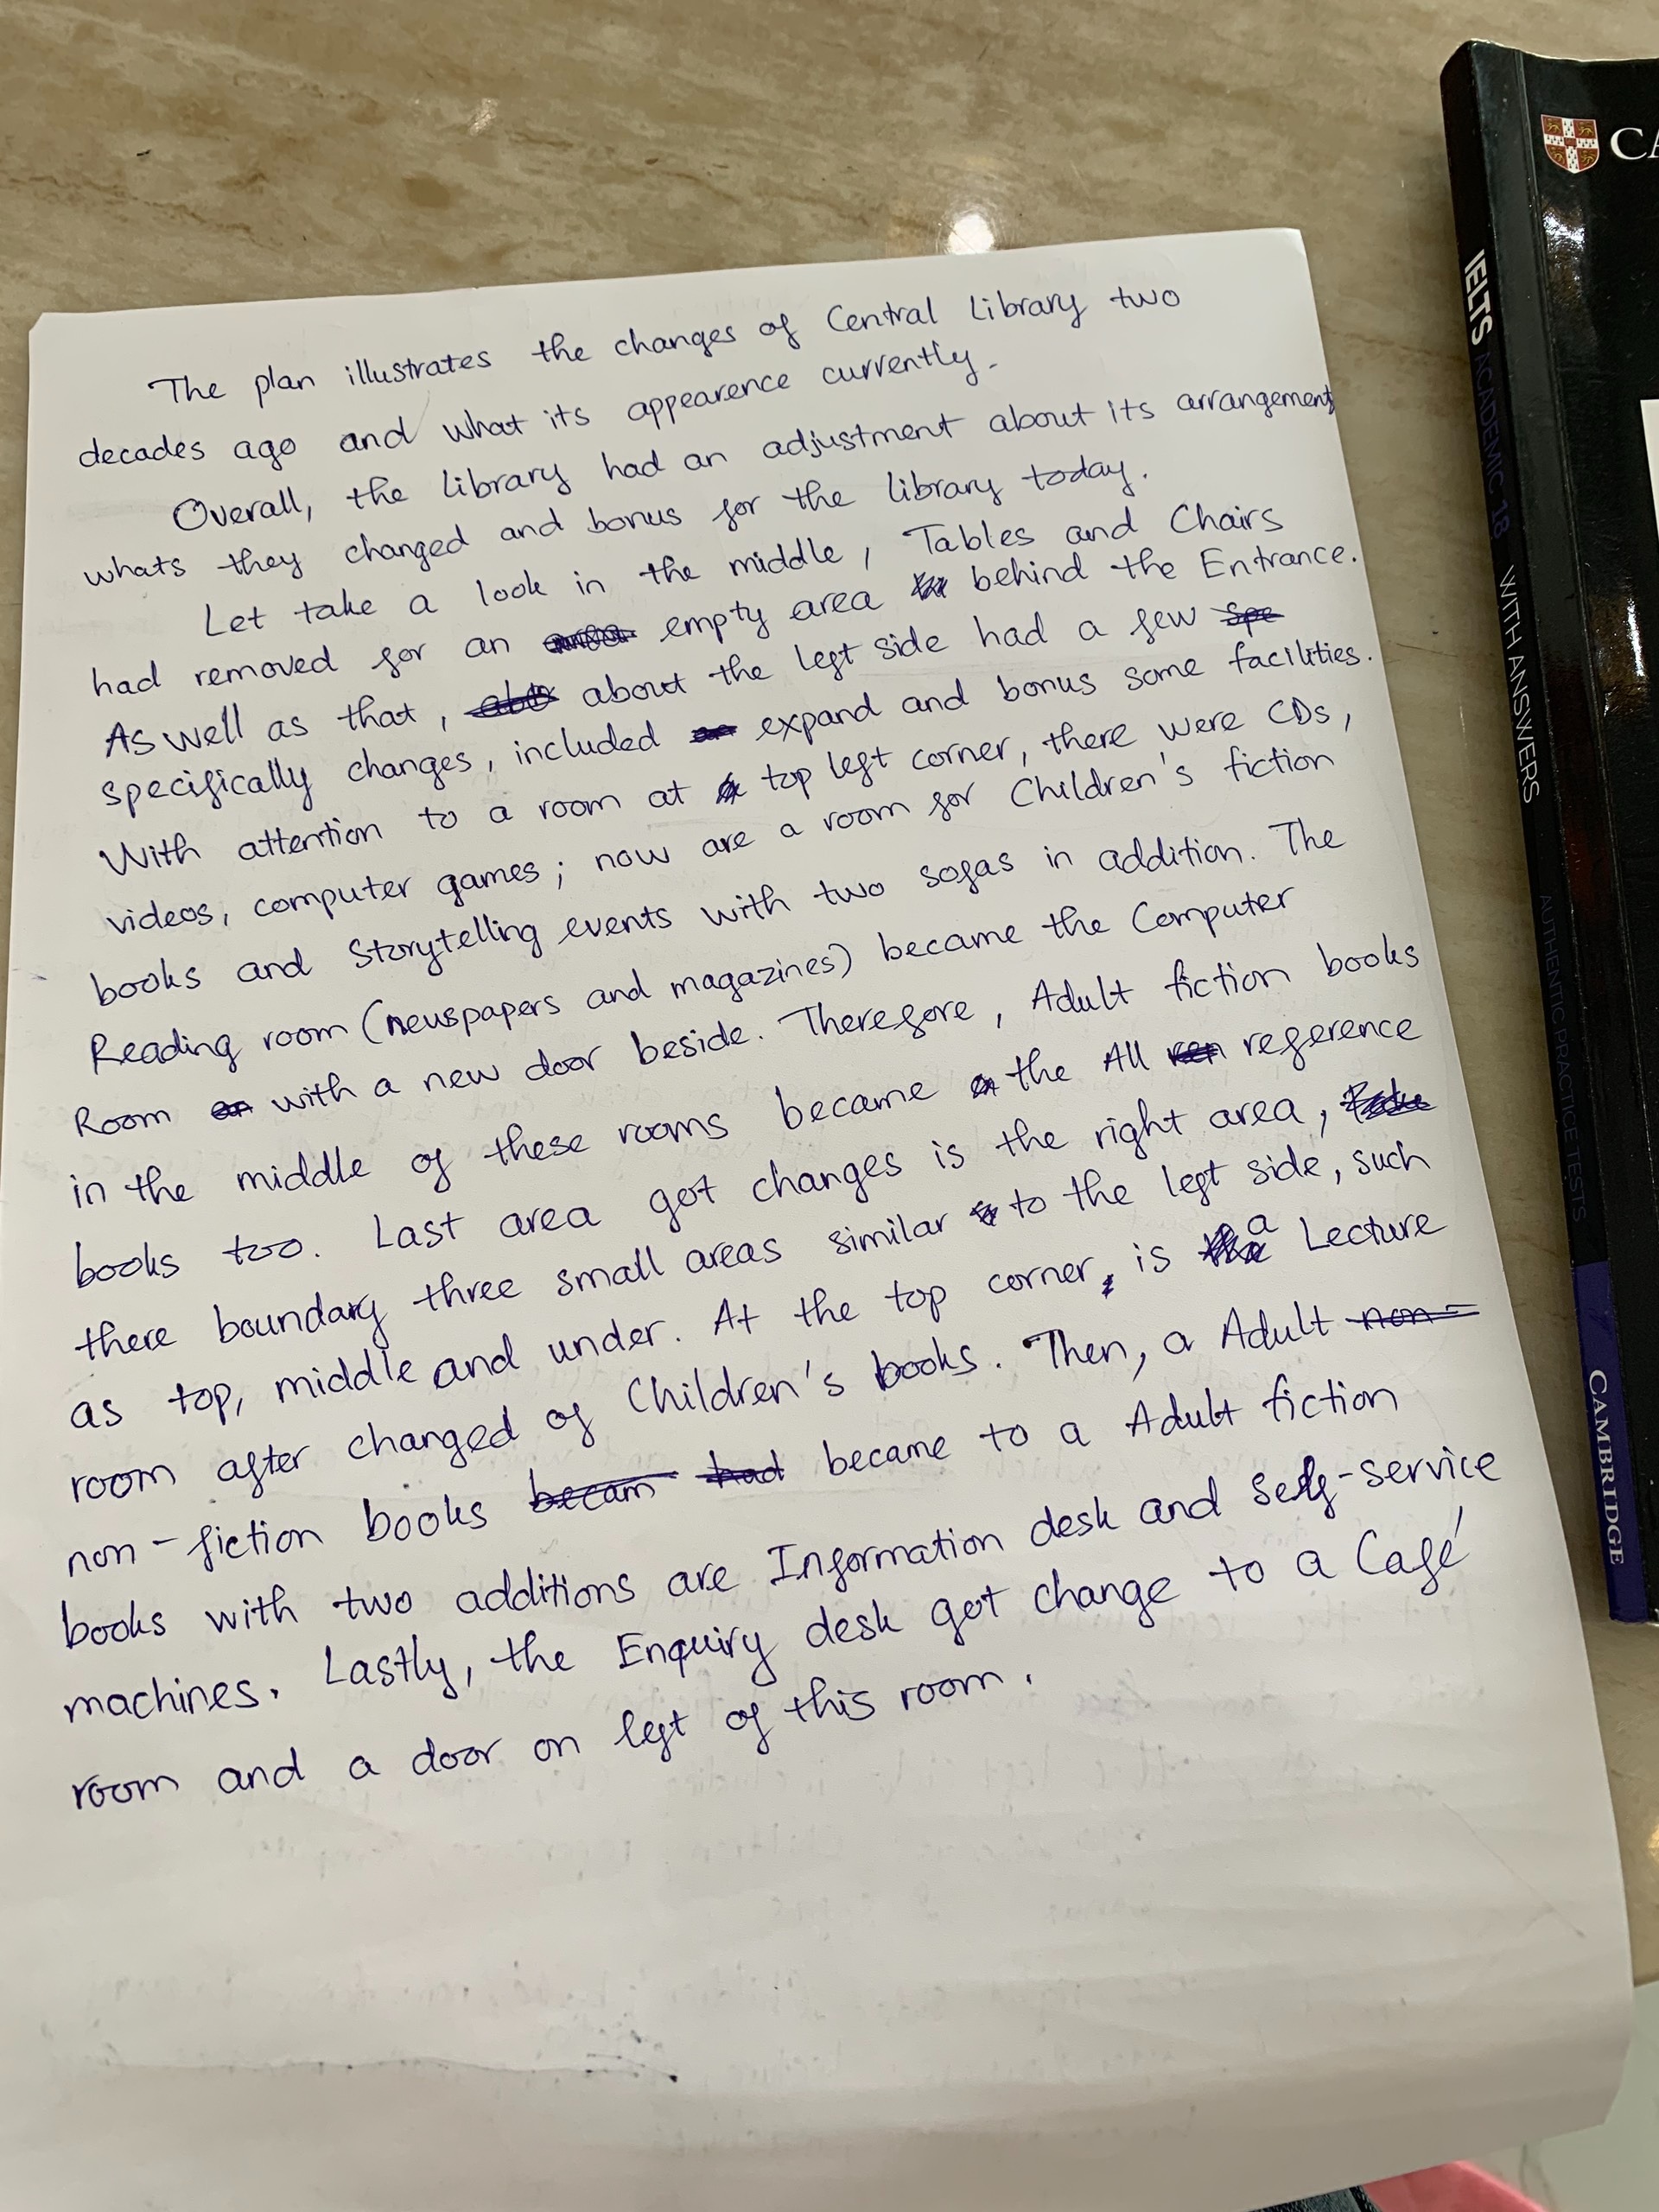 The plan illustrates the changes of Central Library two
decades ago and what its appearence currently.
Overall, the library had an adjustment about its arrangement,
whats they changed and bonus for the library today.
Let take a look in the middle, Tables and Chairs
had removed for an empty area behind the Entrance.
As well as that, about the left side had a few
specifically changes, included expand and bonus some facilities.
With attention to a room at top left corner, there were CDs,
videos, computer games; now are a room for Children's fiction
books and Storytelling events with two sofas in addition. The
Reading room (newspapers and magazines) became the Computer
Room with a new door beside. Therefore, Adult fiction books
in the middle of these rooms became the All reference
books too. Last area got changes is the right area,
there boundary three small areas similar to the left side, such
as top, middle and under. At the top corner, is a Lecture
room after changed of Children's books. Then, a Adult
non-fiction books became to a Adult fiction
books with two additions are Information desk and Self-service
machines. Lastly, the Enquiry desk got change to a Café
room and a door on left of this room.
CA
IELTS ACADEMIC 18 WITH ANSWERS AUTHENTIC PRACTICE TESTS CAMBRIDGE